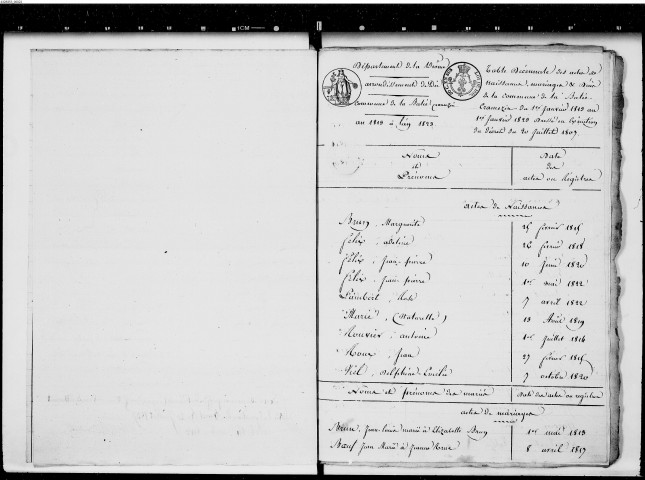 Département de la Drôme
arrondissement de Die
Commune de la Batie Cramezin
an 1813 à l'an 1823
Table Décennale des actes de
Naissance, mariages & Décès
de la Commune de la Batie
Cramezin du 1er Janvier 1813 au
1er Janvier 1823 Dressée en Exécution
du décret du 20 Juillet 1807
Noms
et
Prénoms
Date
des
actes ou Registres
actes de Naissances
Brun, Marguerite 25 février 1815
Félix, adeline 22 février 1818
Félix, Jean-pierre 10 Juin 1820
Félix, Jean-pierre 1er mai 1822
Lambert, Rose 7 avril 1822
Marie, (Naturelle) 13 Août 1819
Mouvier, antoine 1er Juillet 1816
Moux, Jean 27 février 1815
Viel, Delphine Émilie 7 octobre 1820
Noms et prénoms des mariés Date des actes ou registres
actes de mariages
Brun, Jean-louis marié à Elizabeth Brun 1er mai 1813
Bœuf Jean Marié à Jeanne 8 avril 1817